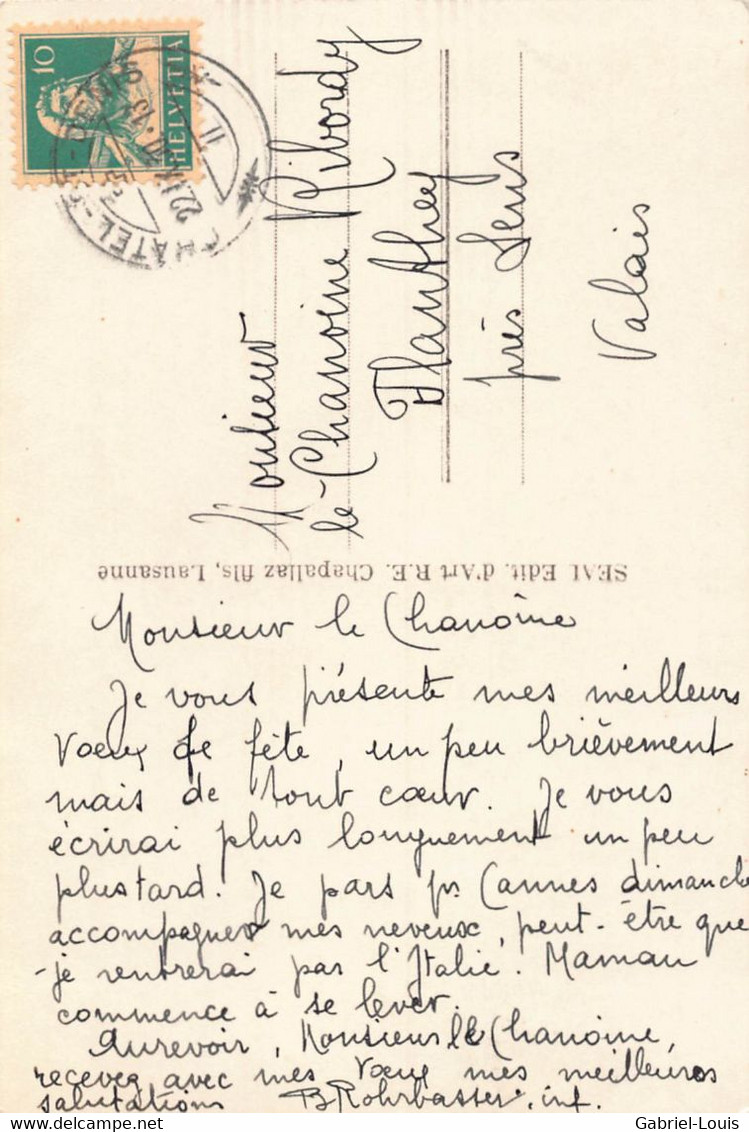 10
HELVETIA
CHATEL-ST-DENIS
Monsieur
le Chanoine Ribordy
Flanthey
près Lens
Valais
SEAL Edit. d'Art R.E. Chapallaz fils, Lausanne
Monsieur le Chanoine
Je vous présente mes meilleurs
vœux de fête, un peu brièvement
mais de tout cœur. Je vous
écrirai plus longuement un peu
plus tard. Je pars pr Cannes dimanche
accompagner mes neveux, peut-être que
je rentrerai par l'Italie. Maman
commence à se lever.
Aurevoir, Monsieur le Chanoine,
recevez avec mes vœux mes meilleures
salutations B Rohrbasser. inf.
Gabriel-Louis